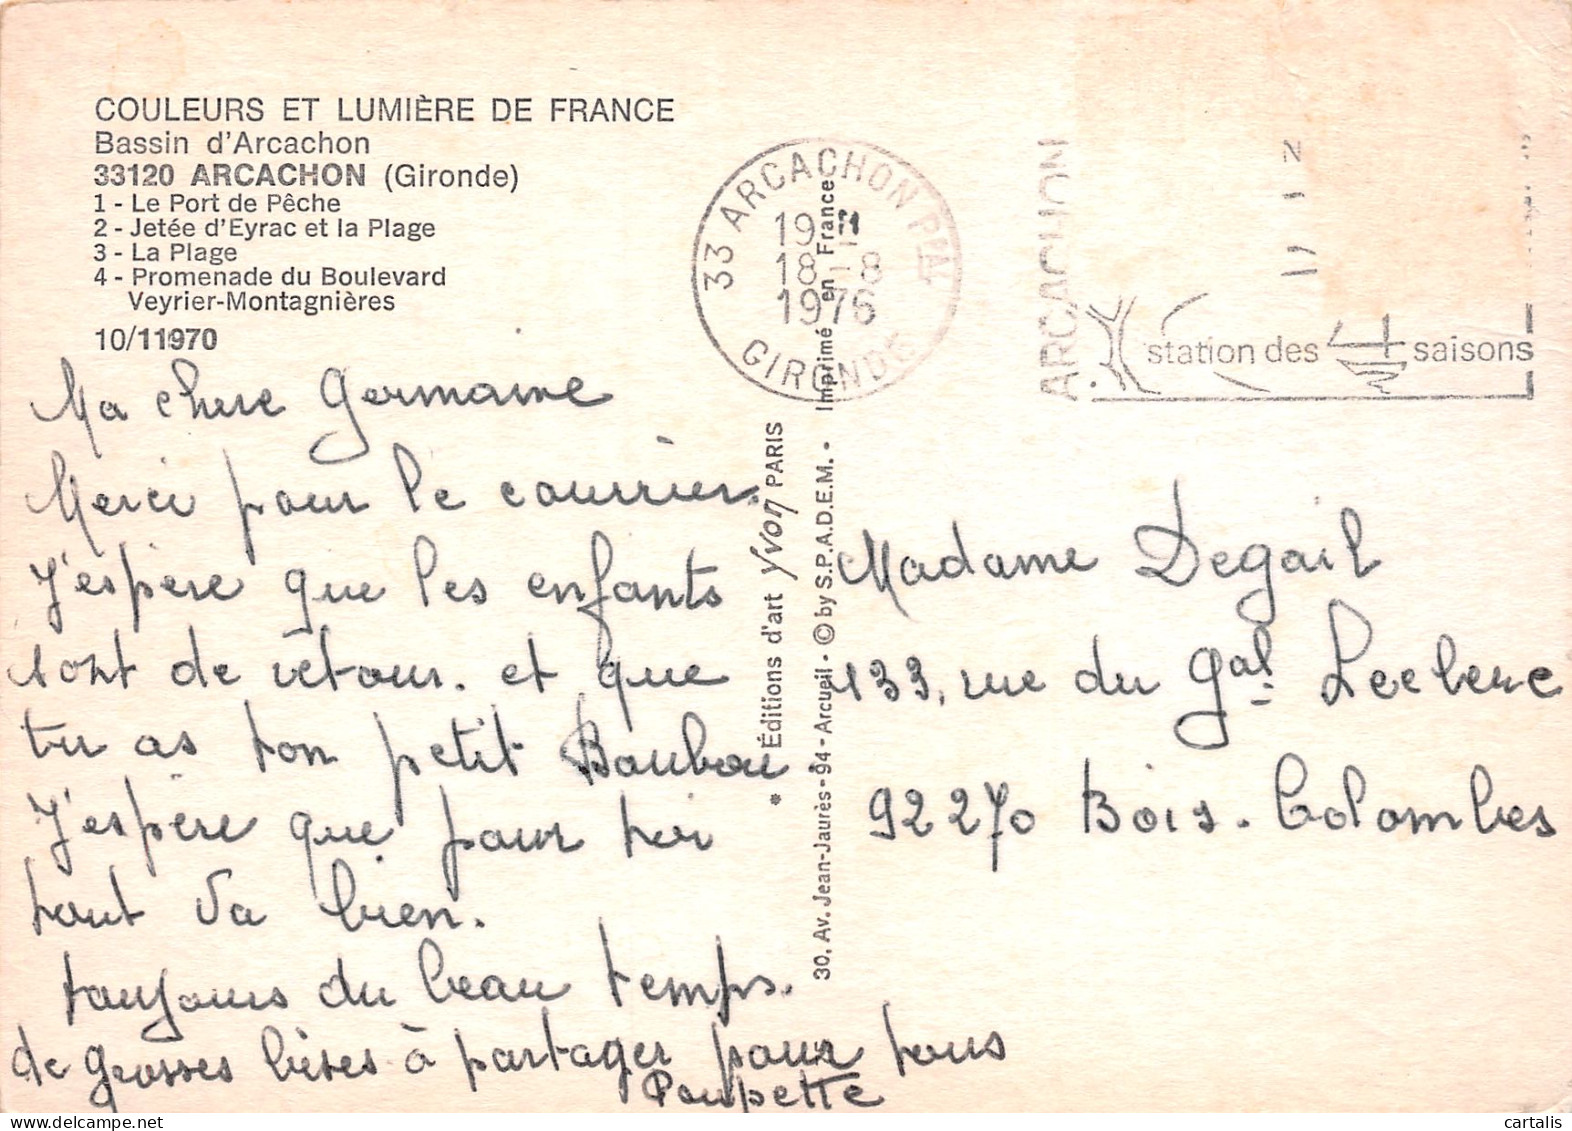 COULEURS ET LUMIÈRE DE FRANCE
Bassin d'Arcachon
33120 ARCACHON (Gironde)
1 - Le Port de Pêche
2 - Jetée d'Eyrac et la Plage
3 - La Plage
4 - Promenade du Boulevard
Veyrier-Montagnières
10/11970
Ma chere Germaine
Merci pour le courrier.
J'espère que les enfants
sont de retour. et que
tu as ton petit Boubou
J'espère que pour toi
tout va bien.
toujours du beau temps.
de grosses bises à partager pour tous
Poupette
33 ARCACHON PPAL
19 H
18 - 8
1976
GIRONDE
ARCACHON
station des 4 saisons
* Éditions d'art Yvon PARIS
30, Av. Jean-Jaurès - 94 - Arcueil - © by S.P.A.D.E.M. • Imprimé en France
Madame Degail
133, rue du Gal Leclerc
92270 Bois-Colombes
cartalis